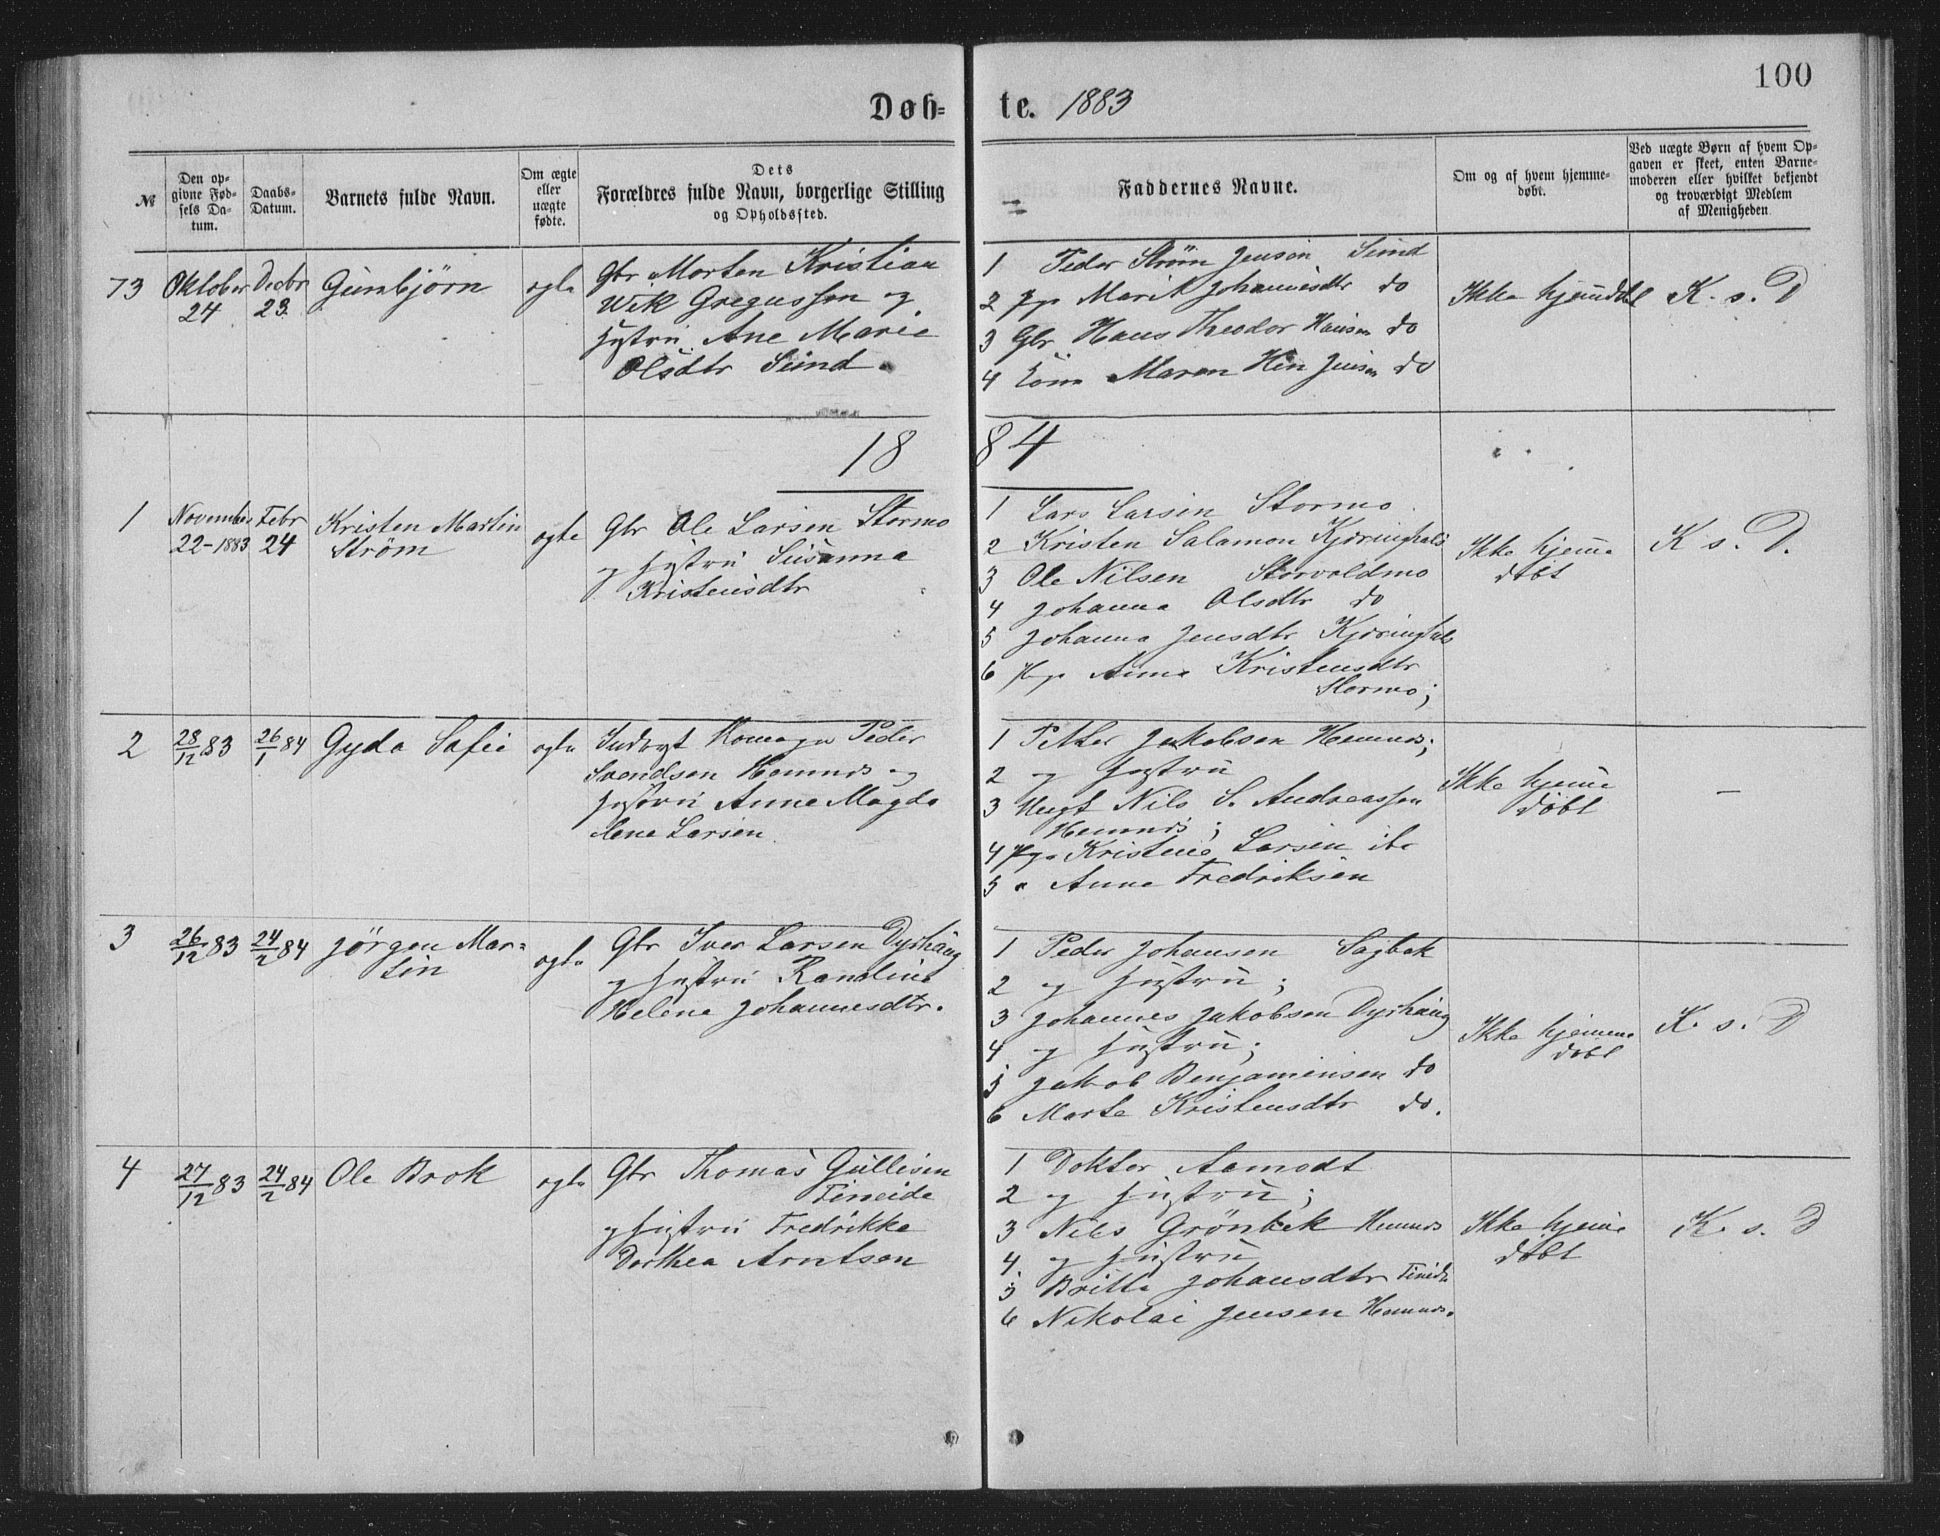 100
Døb= te. 1883
№
Den op-
givne Fød-
sels Da-
tum.
Daabs-
Datum.
Barnets fulde Navn.
Om ægte
eller
uægte
fødte.
Dets
Forældres fulde Navn, borgerlige Stilling
og Opholdssted.
Faddernes Navne.
Om og af hvem hjemme-
døbt.
Ved uægte Børn af hvem Op-
gaven er skeet, enten Barne-
moderen eller hvilket bekjendt
og troværdigt Medlem
af Menigheden
73 Oktober 24 Decbr 23 Gunbjörn ægte
Gbr Morten Kristian
Wik Gregussen og
Hustru Ane Marie
Olsdtr Sund.
1 Peder Strøm Jensen Sund
2 Pge Marit Johannesdtr do
3 Gbr Hans Theodor Hansen do
4 Maren Hen Jensen do
K. s. D
1884
1 November 22-1883 Febr 24 Kristen Martin
Strøm
ægte
Gbr Ole Larsen Stormo
og Hustru Susanna
Kristensdtr
1 Lars Larsen Stormo
2 Kristen Salamon Kjæringhals
3 Ole Nilsen Storvoldmo
4 Johanna Olsdtr do
5 Johanna Jensdtr Kjæringhals
6 Pge Anna Kristensdtr
Stormo;
Ikke hjeme
døbt
K s. D.
2 28/12 83 26/1 84 Gyda Sofie ægte
Peder
Svendsen Hemnes og
Hustru Anne Magda
lene Larsen.
1 Petter Jakobsen Hemnes;
2 og Hustru
3 Ungk Nils S. Andreassen
Hemnes;
4 Pge Kristine Larsen
5 " Anna Fredriksen
Ikke hjeme
døbt
–
3 26/12 83 24/2 84 Jörgen Mar=
tin
ægte
Gbr Iver Larsen Dyrhaug
og Hustru Randine
Helene Johannesdtr.
1 Peder Johansen Sagbak
2 og Hustru;
3 Johannes Jakobsen Dyrhaug
4 og Hustru;
5 Jakob Benjaminsen do
6 Marte Kristensdtr do.
Ikke hjemme
døbt
K. s. D
4 27/12 83 24/2 84 Ole Brok ægte
Gbr Thomas Gullesen
Fineide
og Hustru Fredrikke
Dorthea Arntsen
1 Doktor Aamodt
2 og Hustru;
3 Nils Grönbek Hemnes
4 og Hustru
5 Britta Johansdtr Fineide
6 Nikolai Jensen Hemnes.
Ikke hjeme
døbt
K. s. D